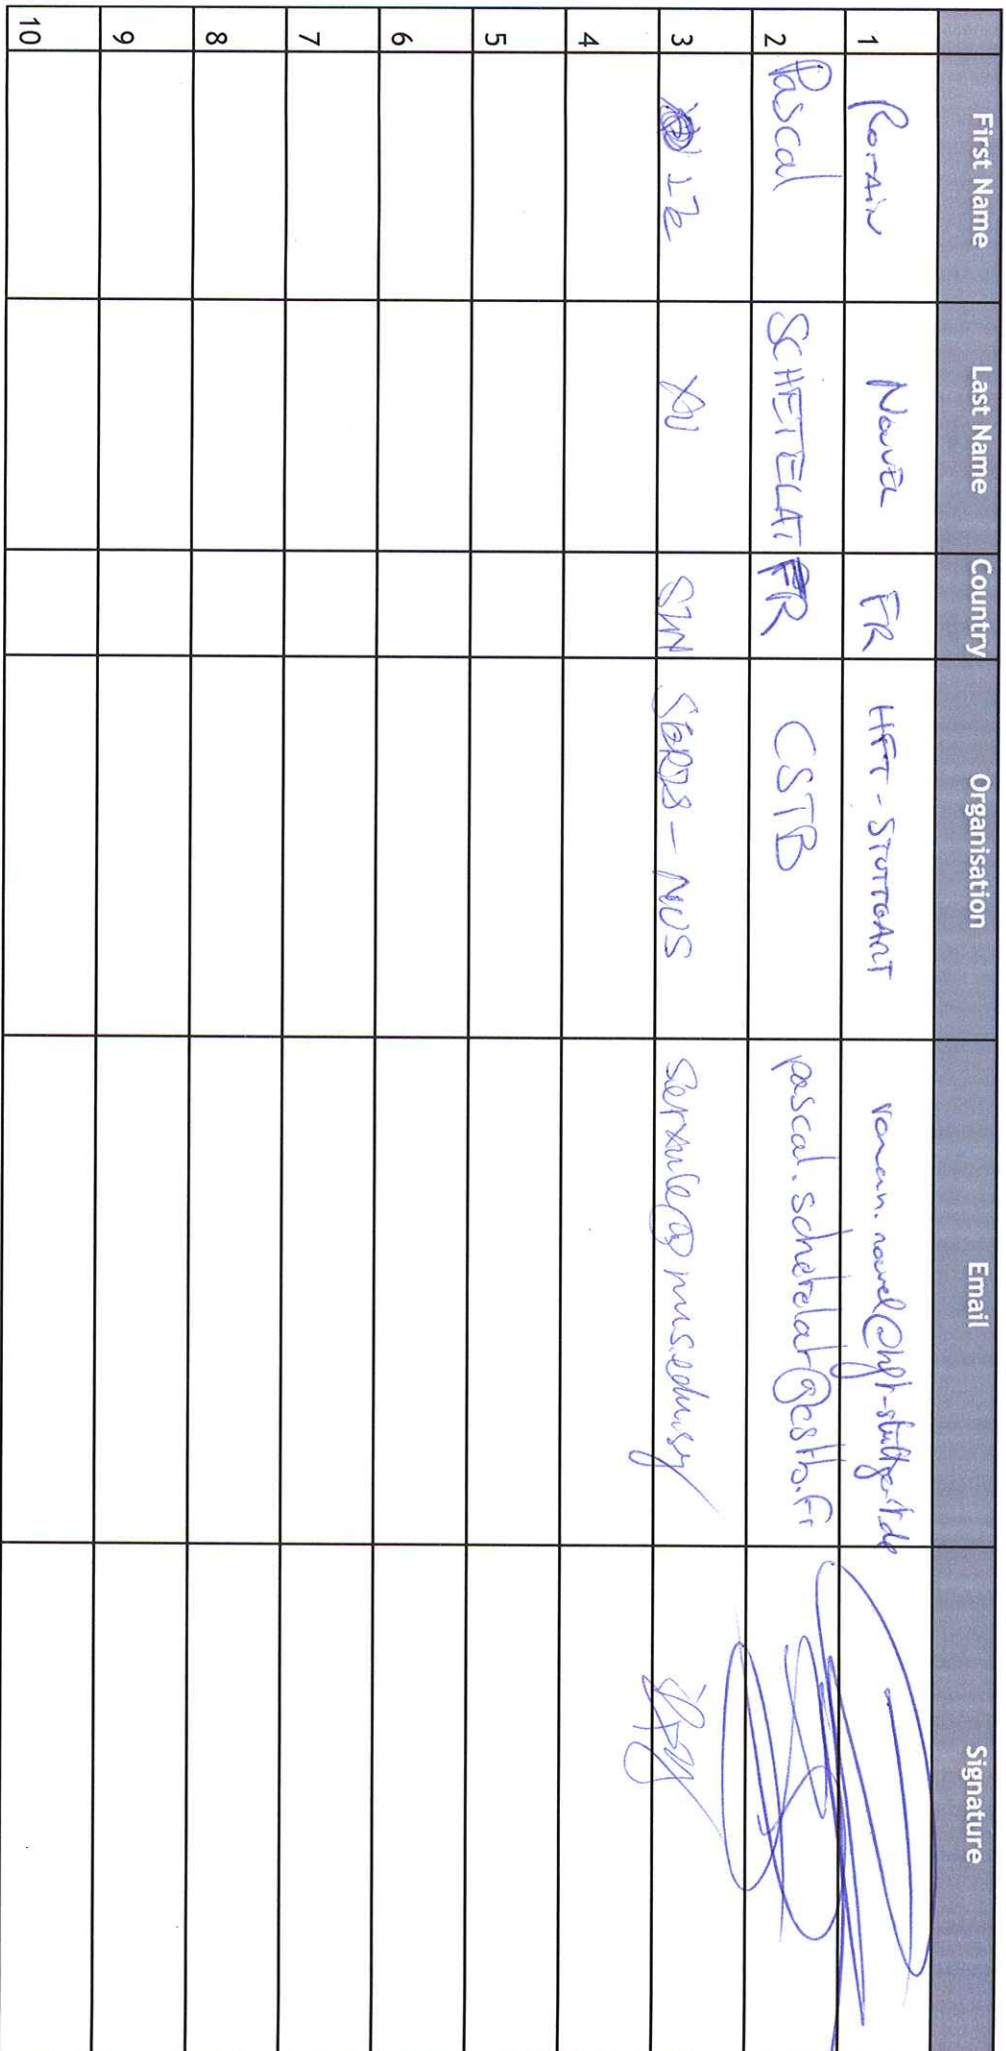 First Name Last Name Country Organisation Email Signature
1 Romain Nouvel FR HFT-STUTTGART romain.nouvel@hft-stuttgart.de
2 Pascal SCHETELAT FR CSTB pascal.schetelat@cstb.fr
3 XU SIN SERIS-NUS
4
5
6
7
8
9
10